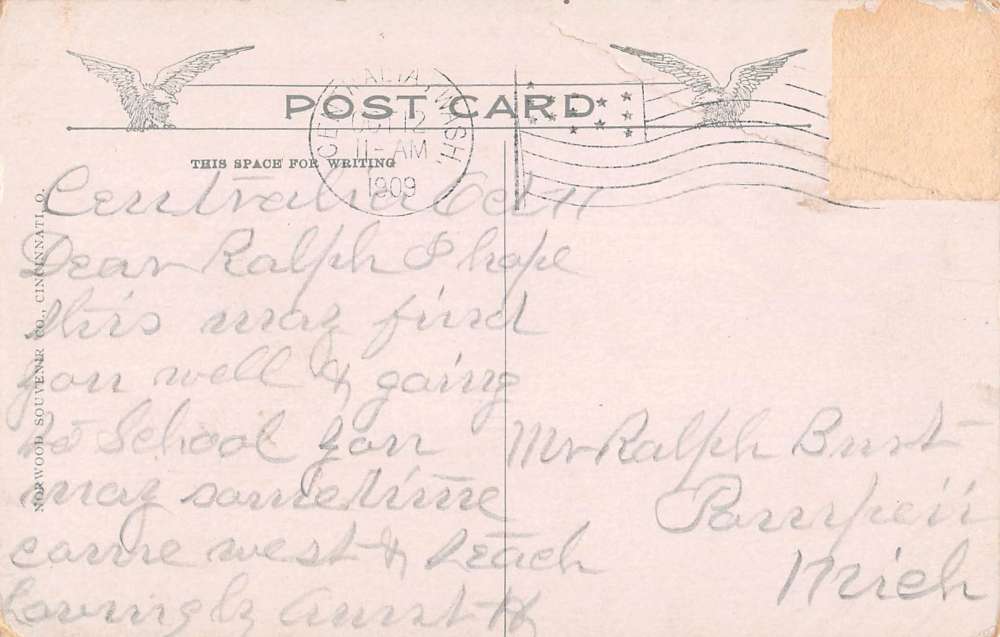 POST CARD
CENTRALIA, WASH.
OCT 12
11-AM
1909
THIS SPACE FOR WRITING
NORWOOD SOUVENIR CO., CINCINNATI, O.
Centralia Oct 11
Dear Ralph I hope
this may find
you well & going
to School you
may sometime
come west & teach
Lovingly Aunt H
Mr Ralph Burt
Pompeii
Mich